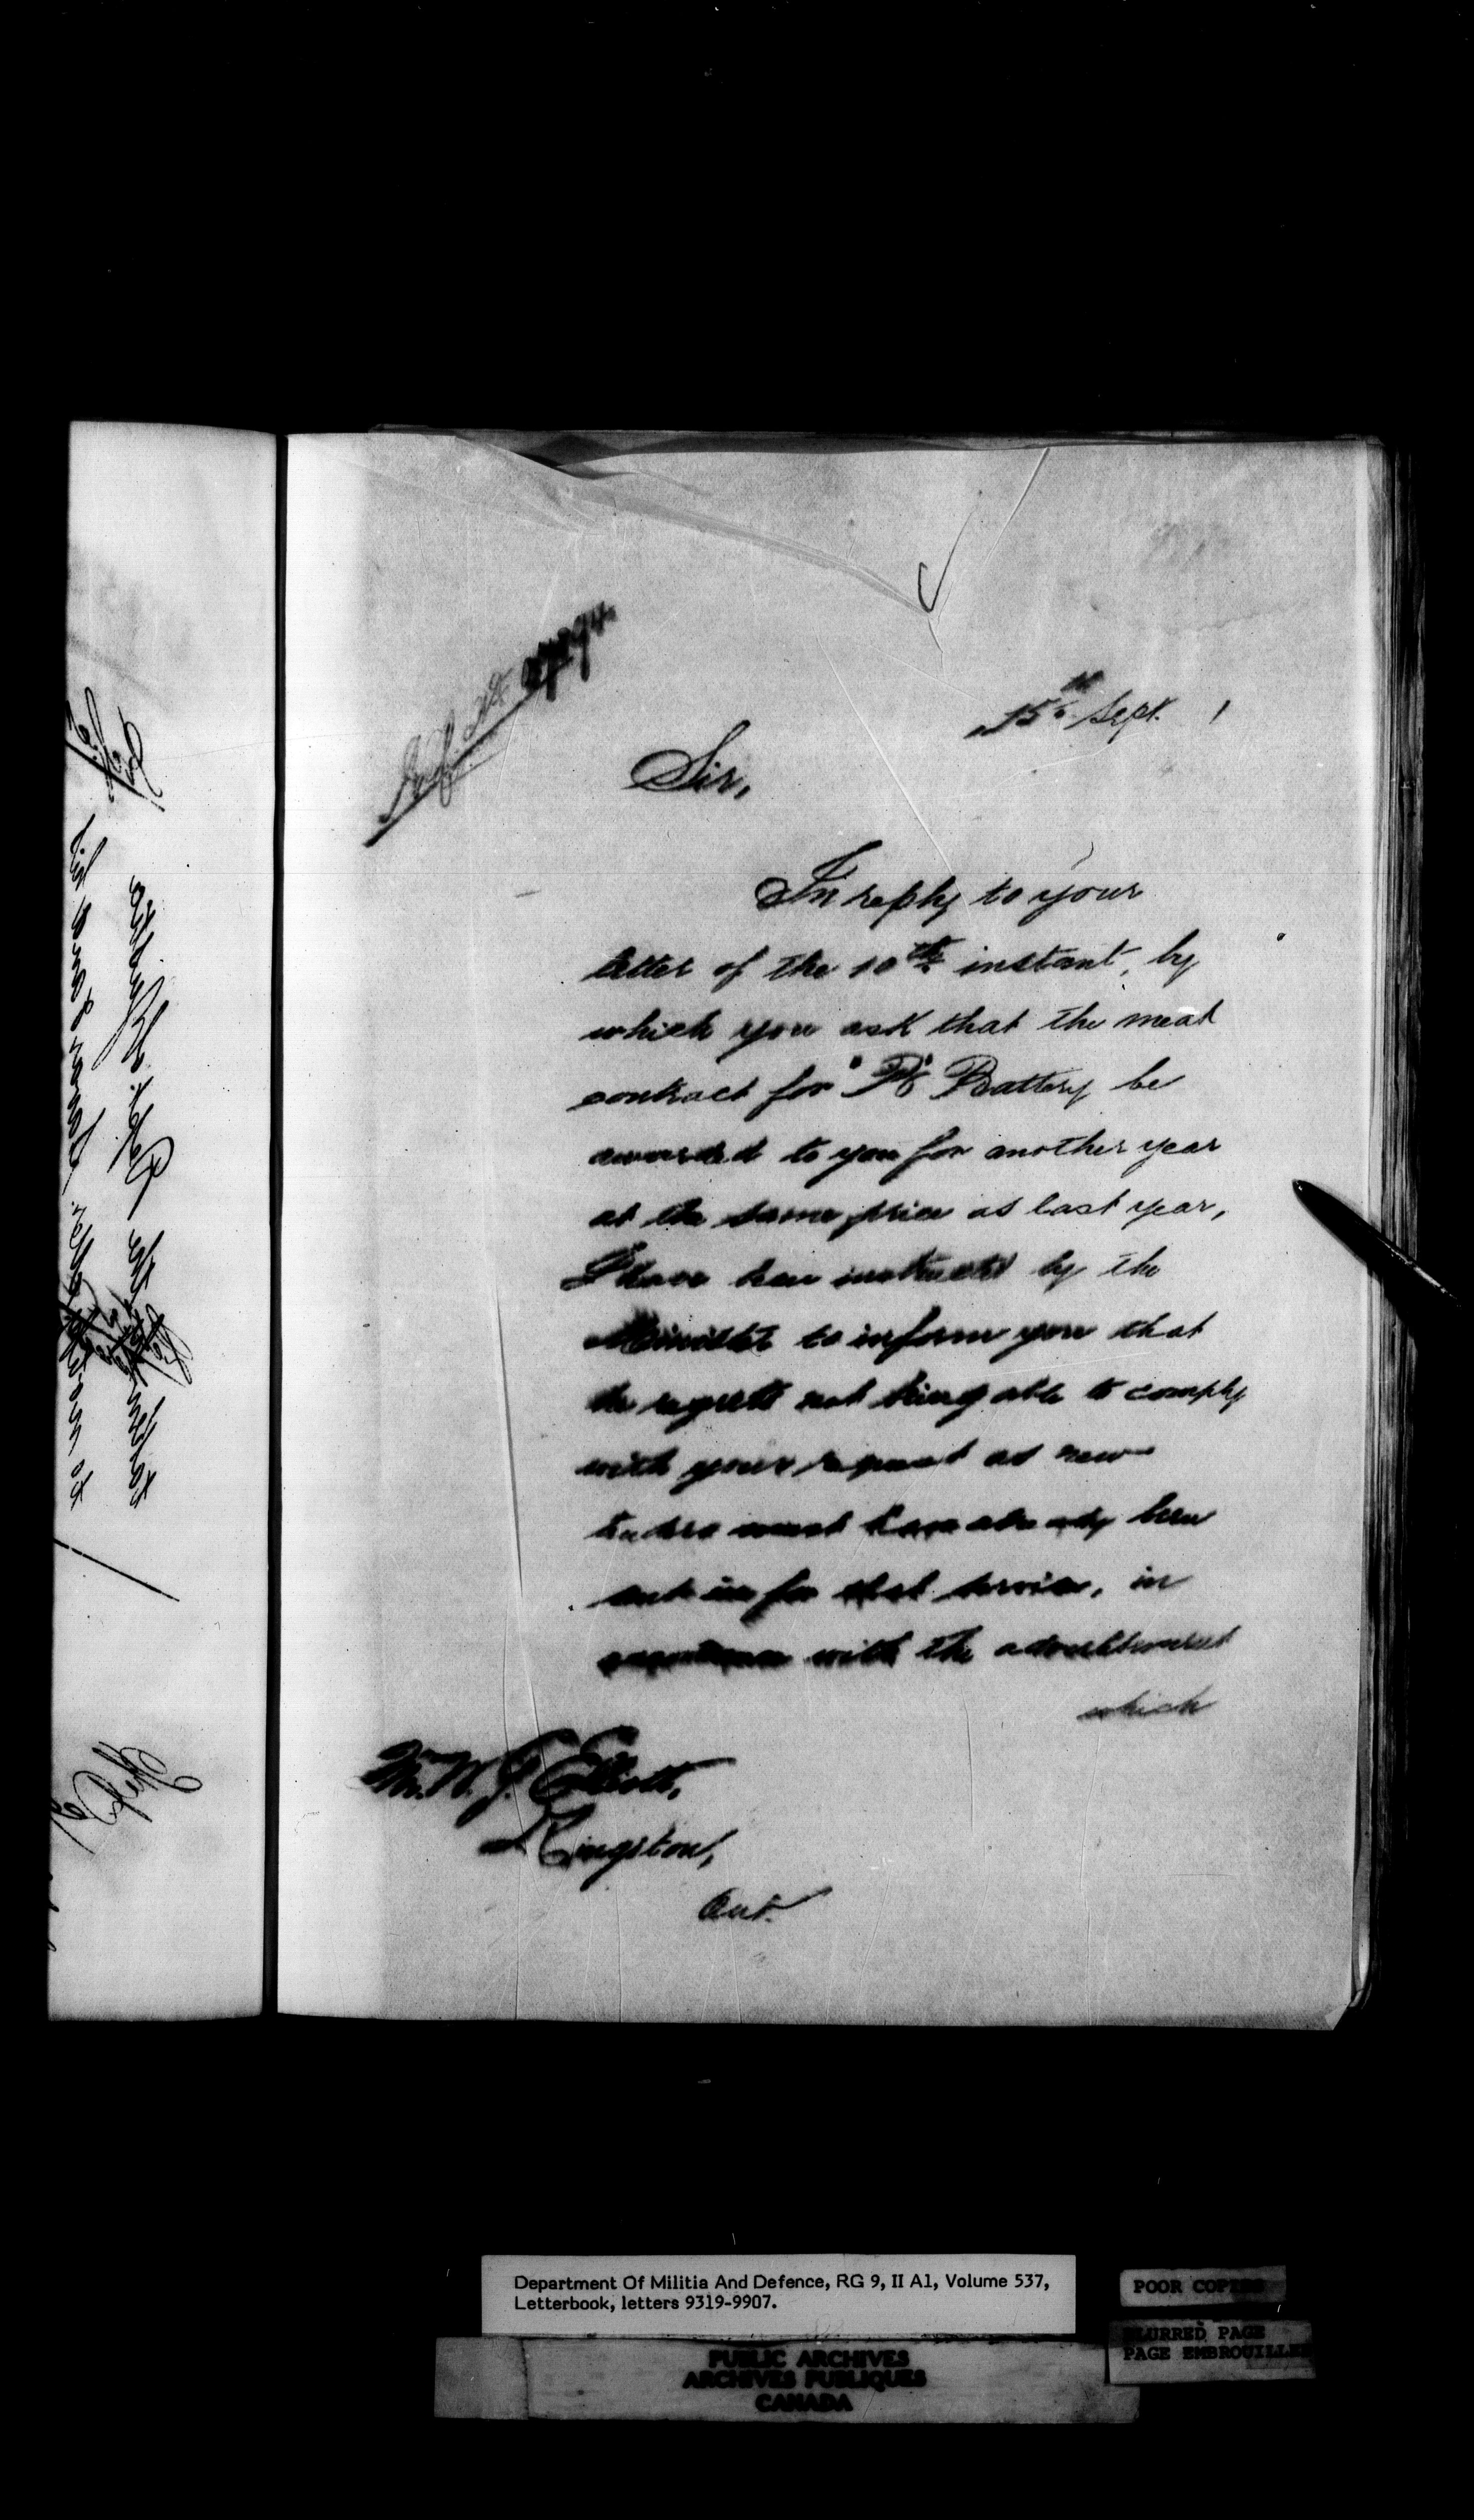 15th Sept. 1
Sir,
In reply to your
letter of the 10th instant, by
which you ask that the meat
contract for Battery be
awarded to you for another year
at the same price as last year,
I have been instructed by the
Minister to inform you that
he regrets not being able to comply
with your request as new
tenders must have already been
sent in for that service, in
with the advertisement
which
Mr. W. J. Elliott,
Kingston,
Ont.
Department Of Militia And Defence, RG 9, II A1, Volume 537,
Letterbook, letters 9319-9907.
POOR COPIES
BLURRED PAGE
PAGE EMBROUILLEE
PUBLIC ARCHIVES
ARCHIVES PUBLIQUES
CANADA